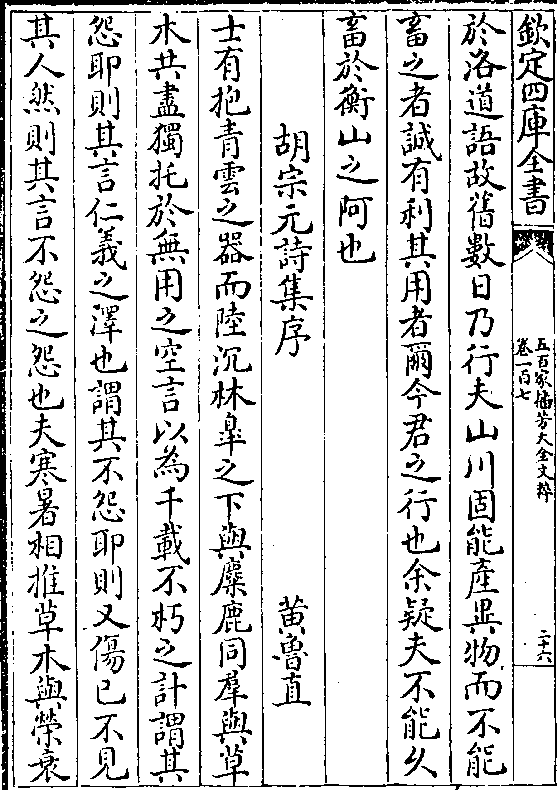 欽定四庫全書
五百家播芳大全文粹
卷一百七
二十六
於洛道語故舊數日乃行夫山川固能產異物而不能
畜之者誠有利其用者爾今君之行也余疑夫不能久
畜於衡山之阿也
胡宗元詩集序 黄魯直
士有抱青雲之器而陸沉林臯之下與麋鹿同羣與草
木共盡獨托於無用之空言以為千載不朽之計謂其
怨耶則其言仁義之澤也謂其不怨耶則又傷已不見
其人然則其言不怨之怨也夫寒暑相推草木與榮衰